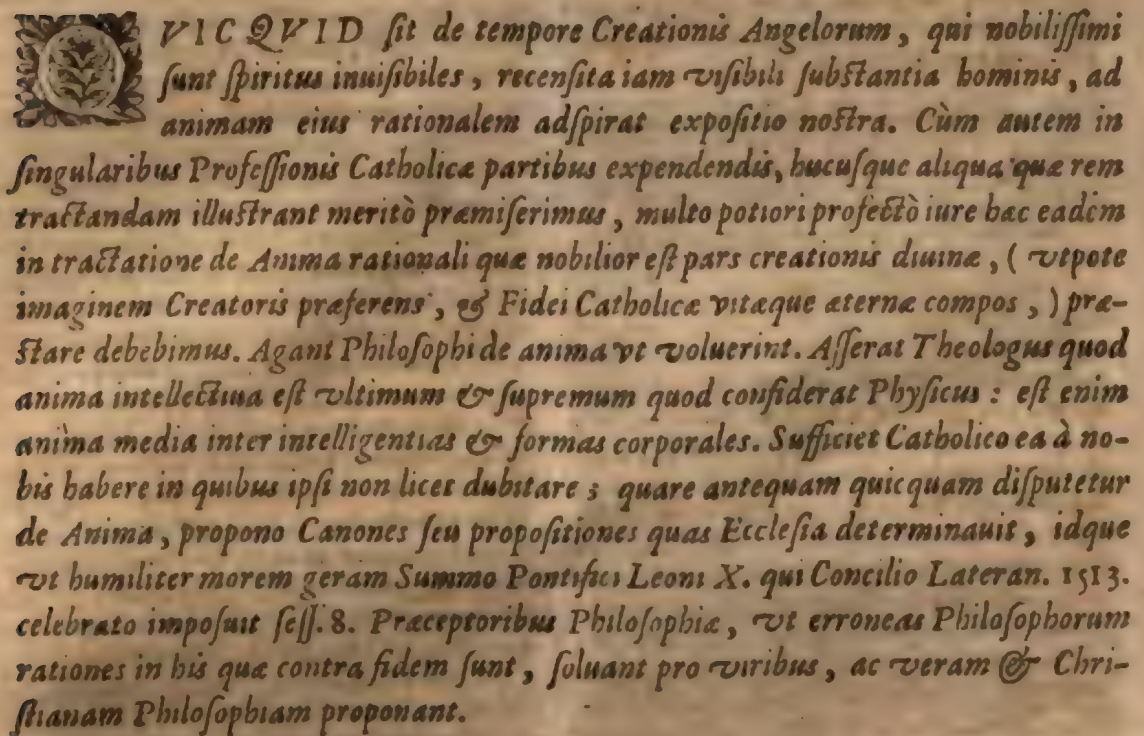 QVICQVID ſit de tempore Creationis Angelorum, qui nobiliſſimi
ſunt ſpiritus inuiſibiles, recenſita iam viſibili ſubſtantia hominis, ad
animam eius rationalem adſpirat expoſitio noſtra. Cùm autem in
ſingularibus Profeſſionis Catholicæ partibus expendendis, hucuſque aliqua quæ rem
tractandam illuſtrant meritò præmiſerimus, multo potiori profectò iure hac eadem
in tractatione de Anima rationali quæ nobilior eſt pars creationis diuinæ, (vtpote
imaginem Creatoris præferens, & Fidei Catholicæ vitæque æternæ compos,) præ-
ſtare debebimus. Agant Philoſophi de anima vt voluerint. Aſſerat Theologus quod
anima intellectiua eſt vltimum & ſupremum quod conſiderat Phyſicus: eſt enim
anima media inter intelligentias & formas corporales. Sufficiet Catholico ea à no-
bis habere in quibus ipſi non licet dubitare; quare antequam quicquam diſputetur
de Anima, propono Canones ſeu propoſitiones quas Eccleſia determinauit, idque
vt humiliter morem geram Summo Pontifici Leoni X. qui Concilio Lateran. 1513.
celebrato impoſuit ſeſſ. 8. Præceptoribus Philoſophiæ, vt erroneas Philoſophorum
rationes in his quæ contra fidem ſunt, ſoluant pro viribus, ac veram & Chri-
ſtianam Philoſophiam proponant.